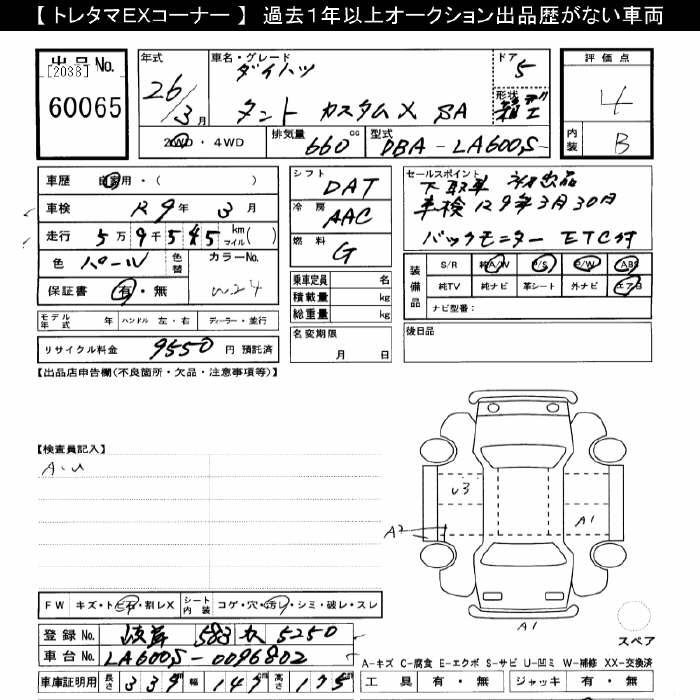 【 トレタマEXコーナー 】 過去1年以上オークション出品歴がない車両
出品 No.
[2038]
60065
年式
26/3月
車名・グレード
ダイハツ
タント カスタムX SA
ドア
5
形状
評価点
4
内装
B
2WD ・ 4WD
排気量
660 cc
型式
DBA - LA600S
車歴
自家用・( )
車検
R9年 3月
走行
5万9千545 km マイル( )
色
パール
色替
カラーNo.
W24
保証書
有・無
モデル年式
年
ハンドル
左・右
ディーラー・並行
リサイクル料金
9550 円 預託済
シフト
DAT
冷房
AAC
燃料
G
乗車定員
名
積載量
kg
総重量
kg
名変期限
月 日
セールスポイント
下取車 初出品
車検R9年3月30日
バックモニター ETC付
装備品
S/R
純A/W
P/S
P/W
ABS
純TV
純ナビ
革シート
外ナビ
エアB
ナビ型番:
後日品
【出品店申告欄(不良箇所・欠品・注意事項等)】
【検査員記入】
A・U
U3
A2
A1
A1
スペア
FW
キズ・トビ石・割レX
シート内装
コゲ・穴・汚レ・シミ・破レ・スレ
登録 No.
岐阜 583 5250
車台 No.
LA600S-0096802
A-キズ C-腐食 E-エクボ S-サビ U-凹ミ W-補修 XX-交換済
車庫証明用
長さ
339
幅
147
高さ
175
工具
有・無
ジャッキ
有・無